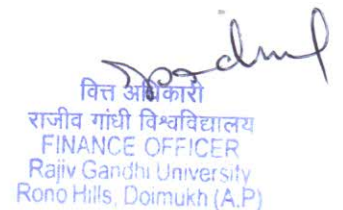 वित्त अधिकारी
राजीव गांधी विश्वविद्यालय
FINANCE OFFICER
Rajiv Gandhi University
Rono Hills, Doimukh (A.P)